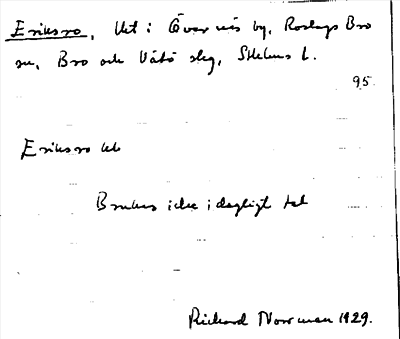 Eriksro, tht i Överväs by, Roslags Bro
sn, Bro och Vätö skg, Sthlms l.
95.
Eriksro tht
Brukas icke i dagligt tal
Richard Norrman 1929.